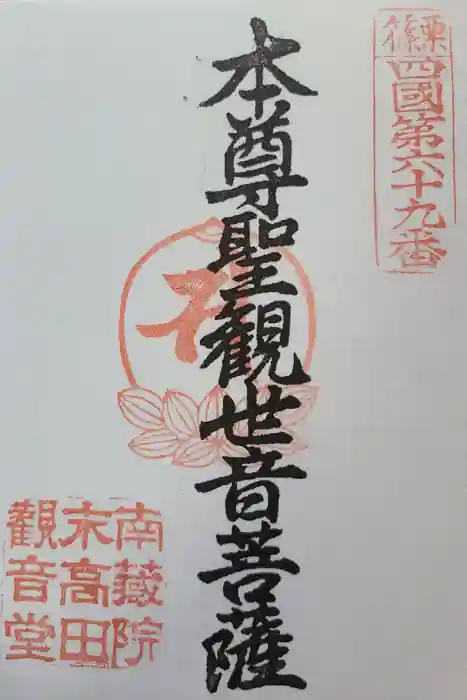 篠栗
四國第六十九番
本尊聖觀世音菩薩
南蔵院
末高田
觀音堂